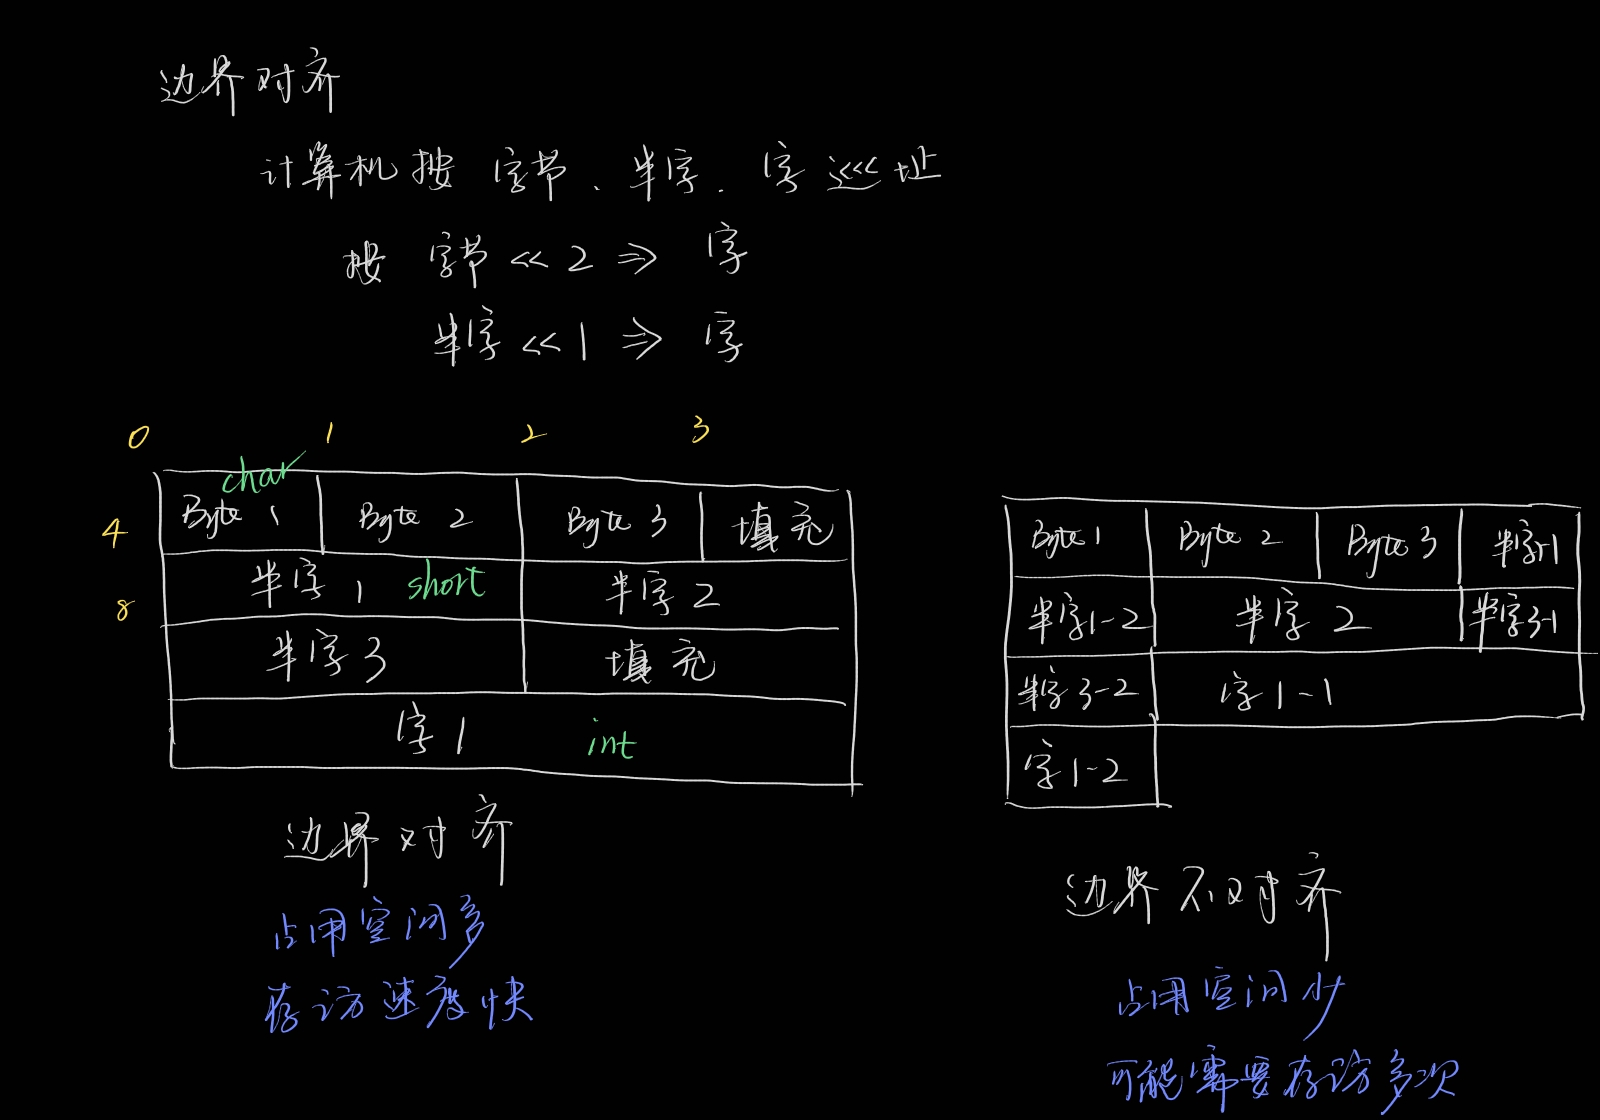 边界对齐
计算机按 字节、半字、字 巡址
按 字节 << 2 => 字
半字 << 1 => 字
0 1 2 3
char
4 Byte 1 Byte 2 Byte 3 填充
半字 1 short 半字 2
8
半字 3 填充
字 1 int
边界对齐
占用空间多
存访速度快
Byte 1 Byte 2 Byte 3 半字1-1
半字1-2 半字 2 半字3-1
半字3-2 字1-1
字1-2
边界不对齐
占用空间少
可能需要存访多次